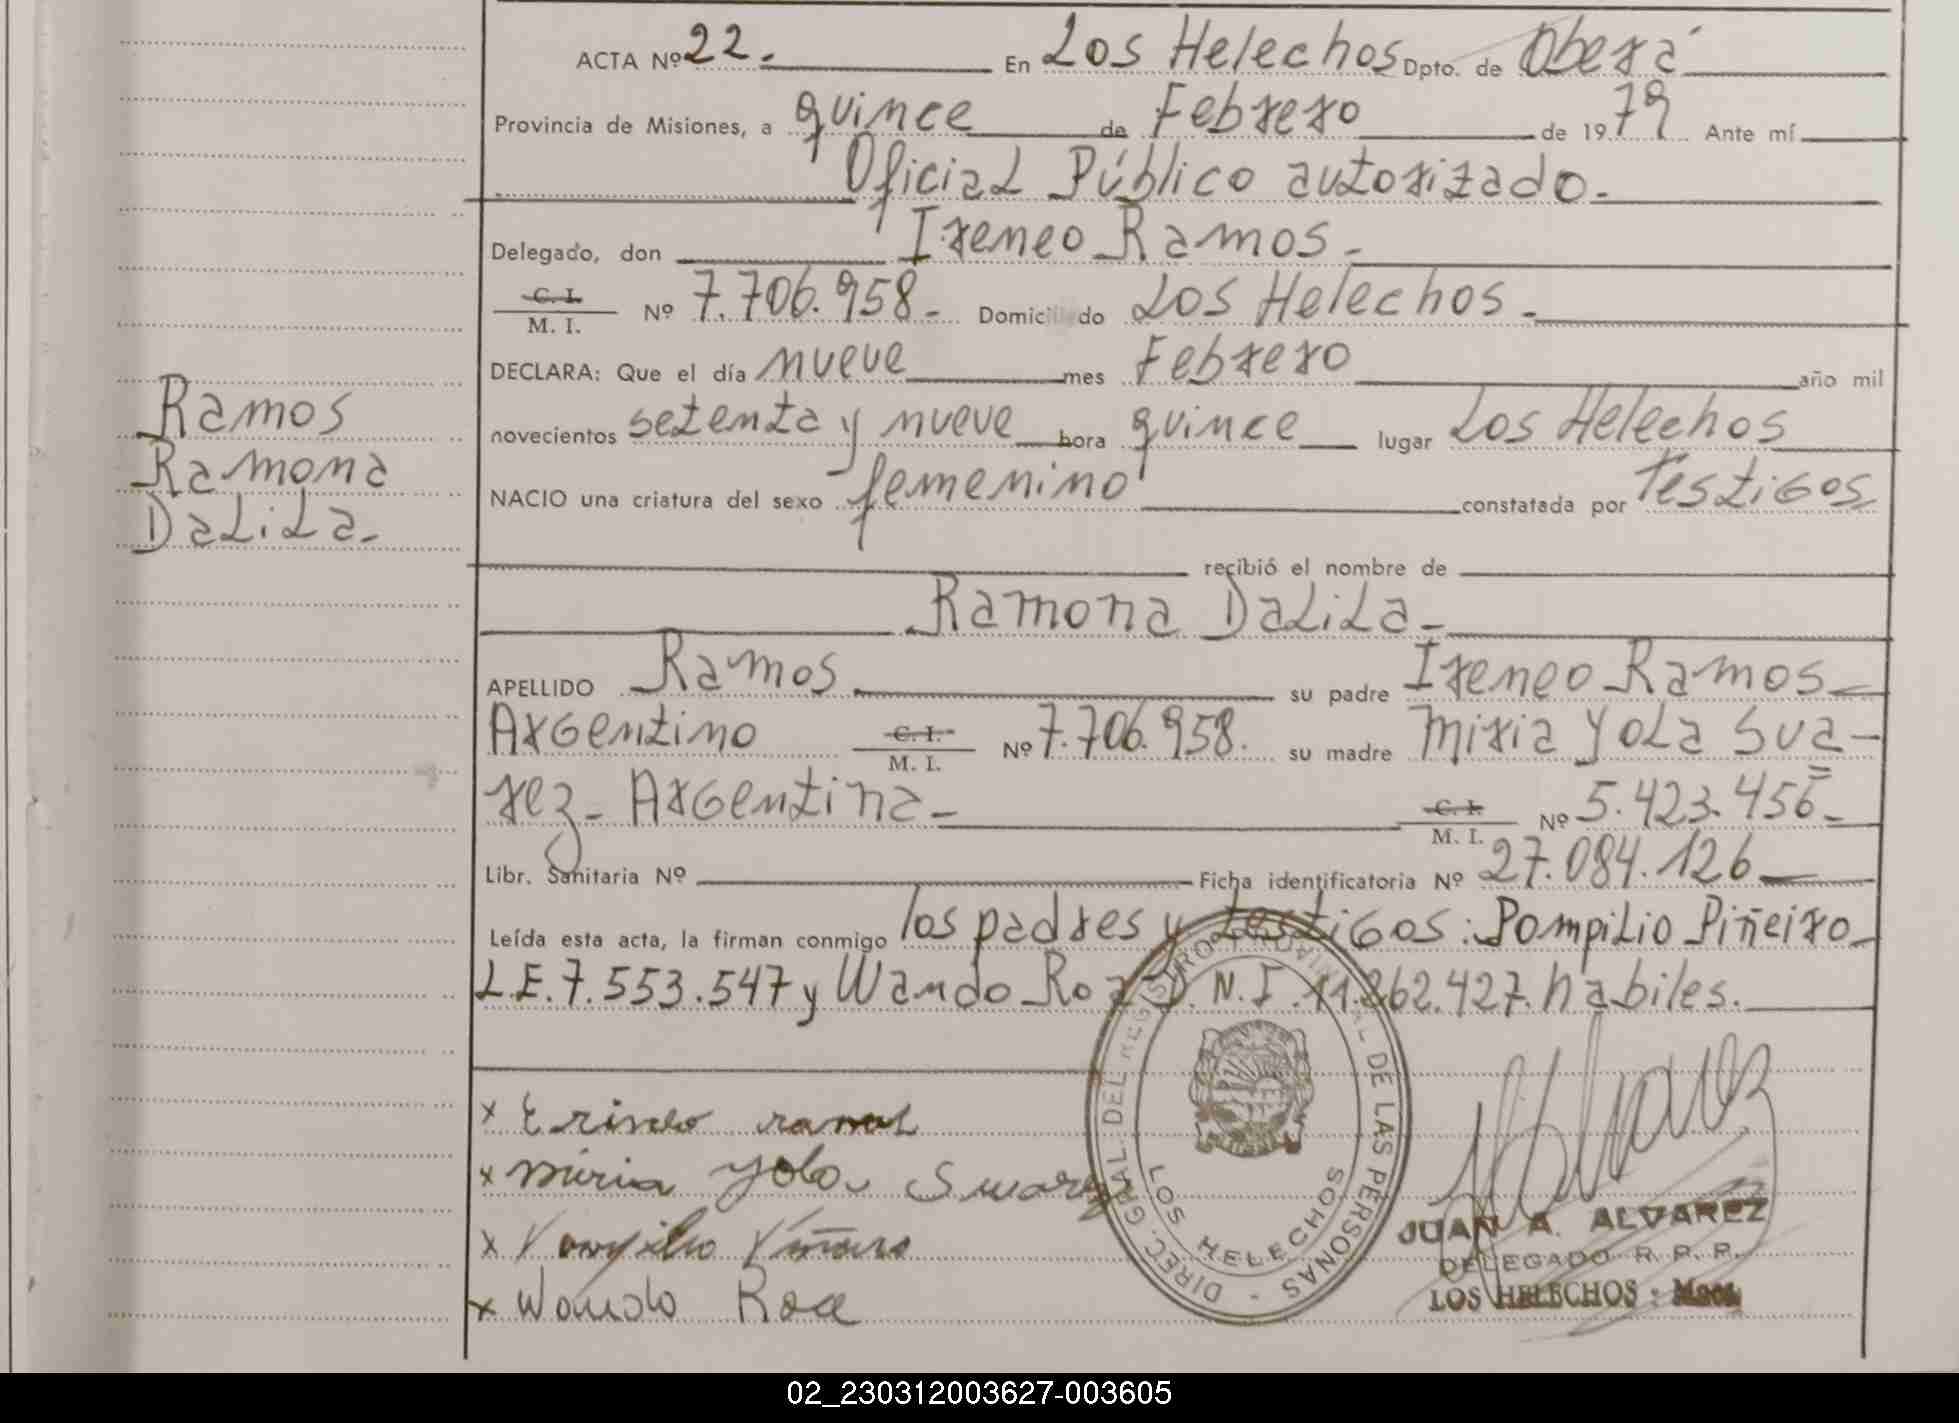 ACTA Nº 22. En Los Helechos Dpto. de Oberá
Provincia de Misiones, a quince de Febrero de 1979 Ante mí
Oficial Público autorizado.
Delegado, don Ireneo Ramos.
C. I. / M. I. Nº 7.706.958. Domiciliado Los Helechos.
DECLARA: Que el día nueve mes Febrero año mil
novecientos setenta y nueve hora quince lugar Los Helechos
NACIO una criatura del sexo femenino constatada por Testigos
recibió el nombre de
Ramona Dalila.
APELLIDO Ramos su padre Ireneo Ramos
Argentino C. I. / M. I. Nº 7.706.958. su madre Miria Yola Sua-
rez - Argentina C. I. / M. I. Nº 5.423.456
Libr. Sanitaria Nº Ficha identificatoria Nº 27.084.126
Leída esta acta, la firman conmigo los padres y testigos: Pompilio Piñeiro
L.E. 7.553.547 y Wando Roa D.N.I. 11.862.427. habiles.
Ramos
Ramona
Dalila.
x Erineo ramos
x miria Yola Suarez
x Pompilio Piñeiro
x Wando Roa
DIREC. GRAL DEL REGISTRO PROVINCIAL DE LAS PERSONAS
LOS HELECHOS
JUAN A. ALVAREZ
DELEGADO R. P. P.
LOS HELECHOS - Mnes.
02_230312003627-003605